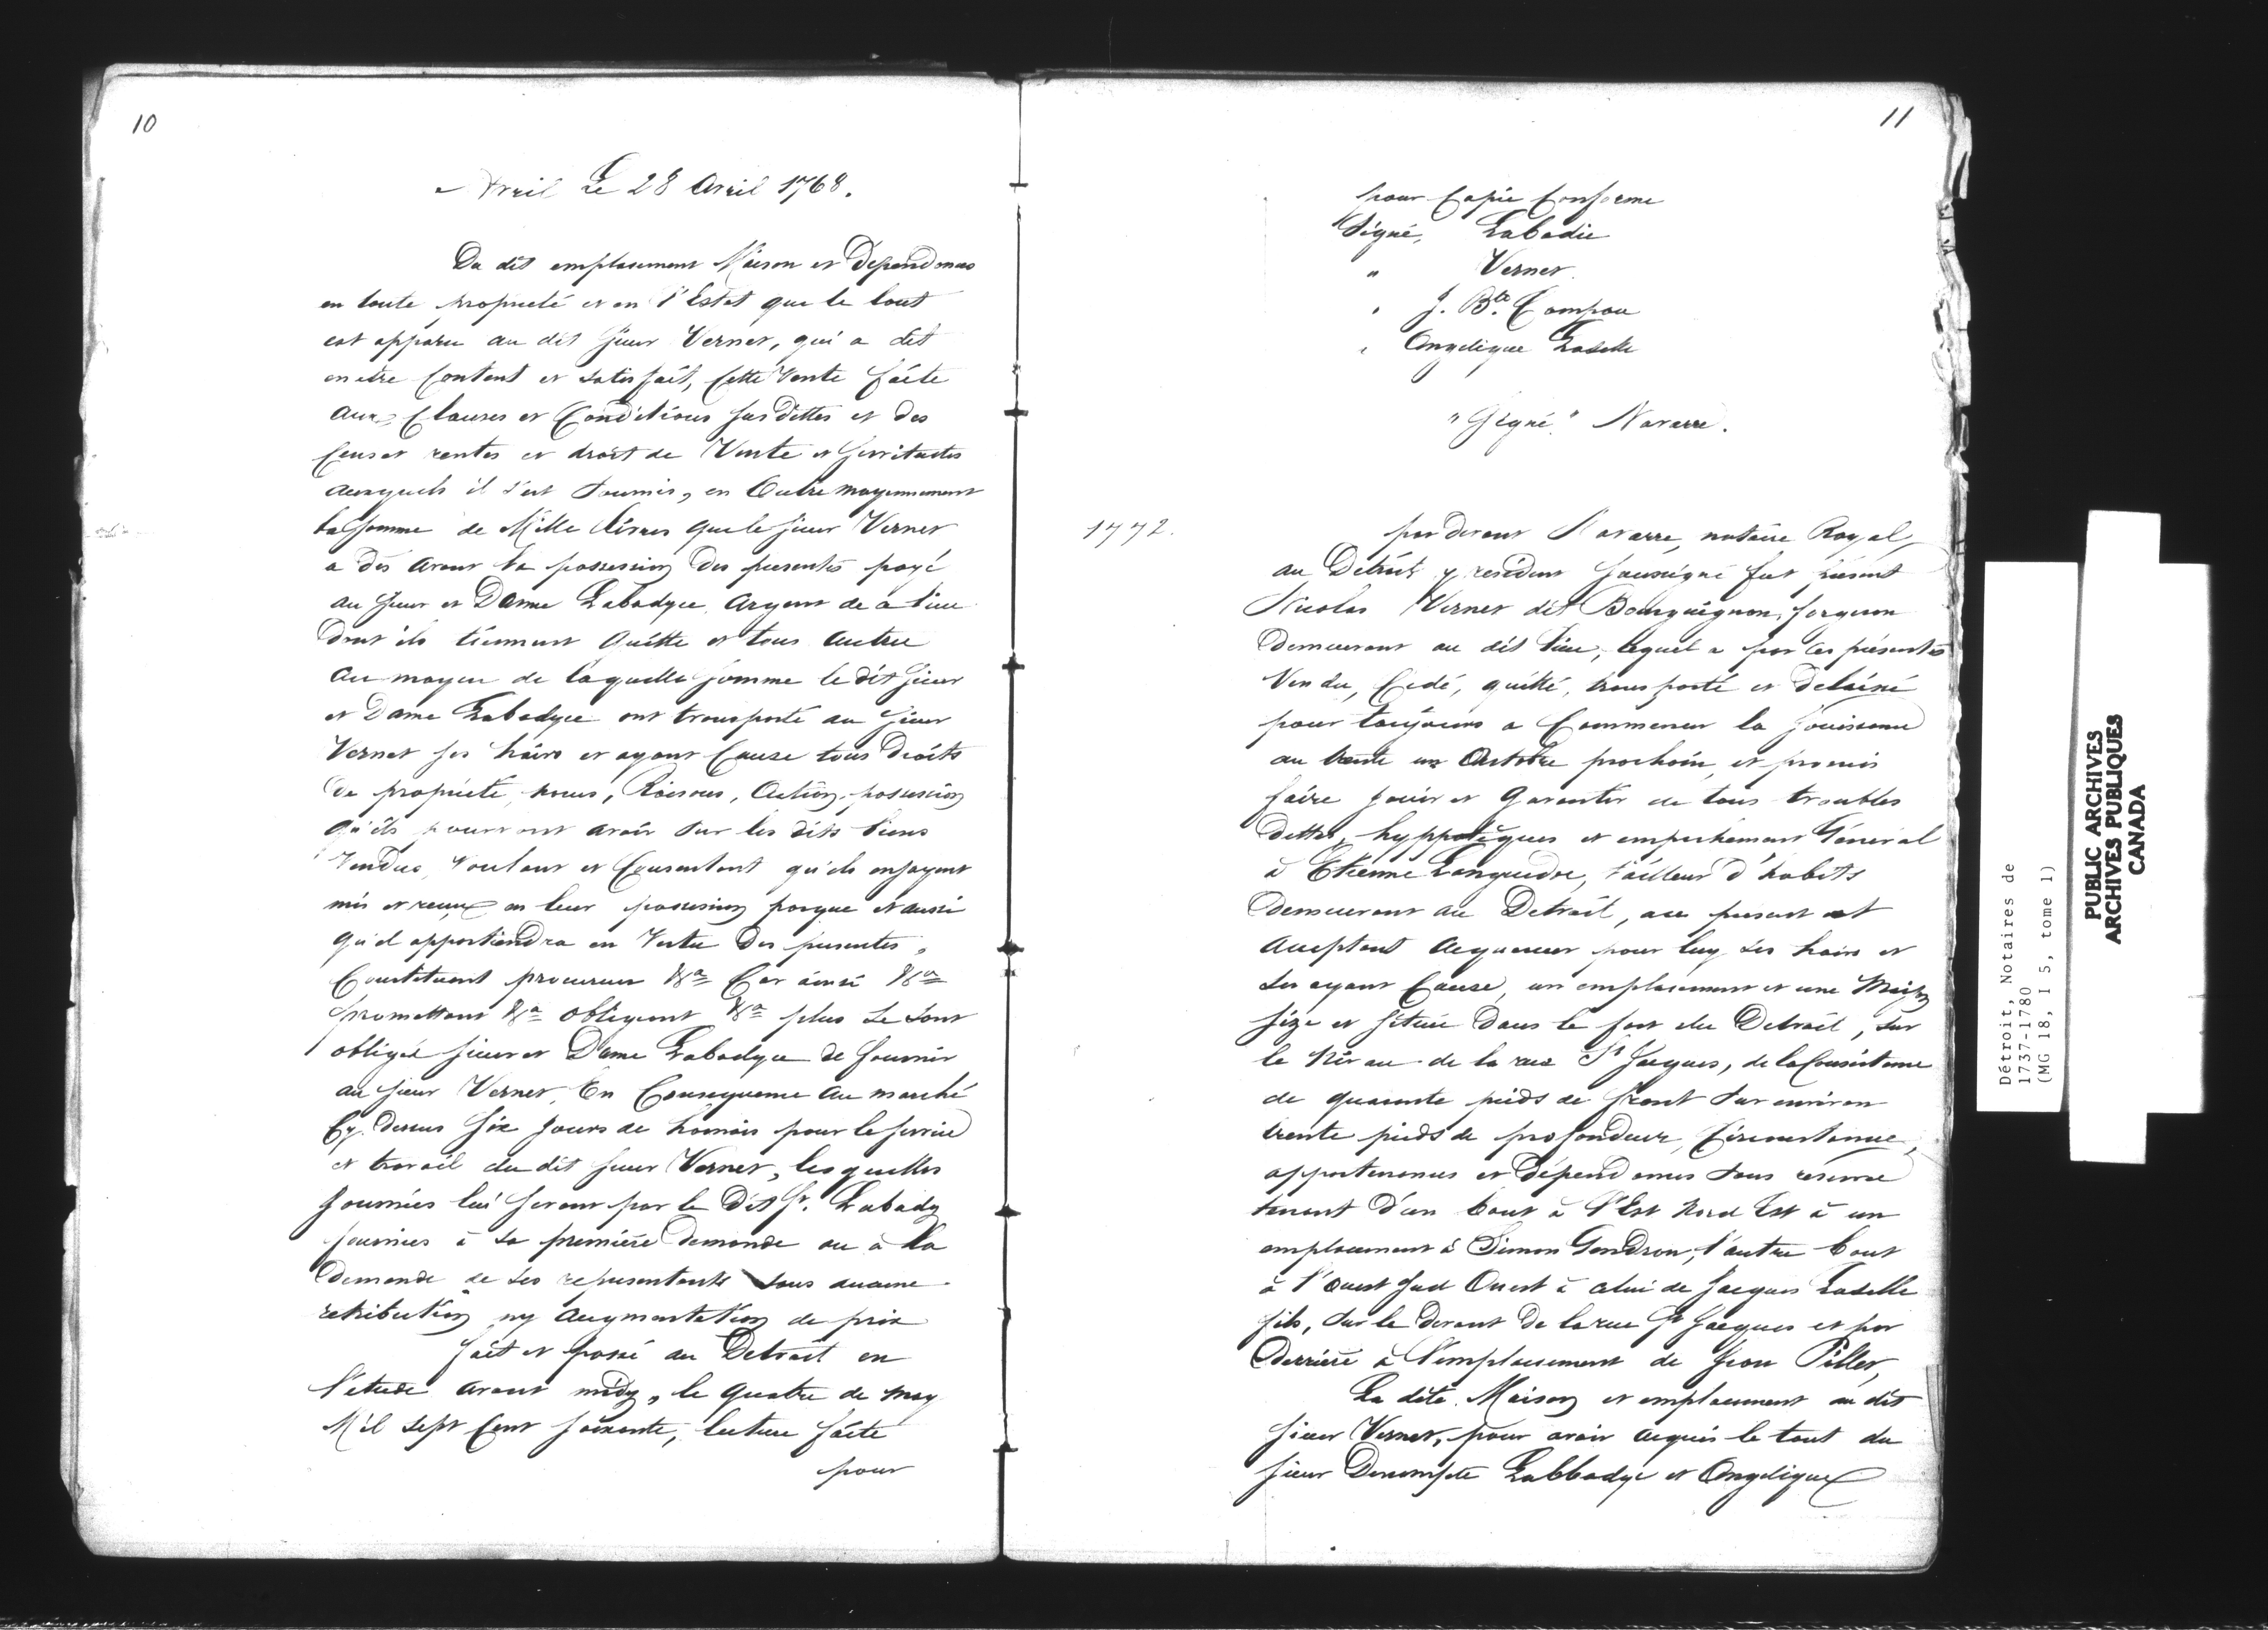 10
Avril Le 28 Avril 1768.
Du dit emplasement Maison et Dépendences
en toute propriété et en l'Estat que le tout
est apparu au dit Sieur Vernet, qui a dit
en etre Content et Satisfait, Cette Vente faite
aux Clauses et Conditions susdittes et des
Cens et rentes et droit de Vente et Servitudes
auxquels il s'est soumis, en Outre moyennement
la Somme de Mille Livres que le Sieur Vernet
a dès avant la possession des presentes payé
au Sieur et Dame Labadye Argent de a lieu
dont ils tiennent Quitte et tous autre
au moyen de laquelle Somme le dit Sieur
et Dame Labadye ont transporté au Sieur
Vernet ses hairs et ayant Cause tous Droits
de propriété, noms, Raisons, Action, possession
qu'ils pourront avoir sur les dits biens
Vendus, Voulant et Consentent qu'ils en soyent
mis et reçus en leur possession par que et aussi
qu'il appartiendra en Vertu des presentes,
Constituant procureur &a Car ainsi &a
promettant &a obligeant &a plus se sont
obligé Sieur et Dame Labadye de fournir
au Sieur Vernet, En Consequence au marché
Cy dessus Six Jours de harnois pour le service
et travail du dit Sieur Vernet, lesquelles
Journées lui seront par le Dit Sr. Labady
fournies à sa première demande ou à la
Demande de ses representants sans aucune
retribution ny Augmentation de prix
fait et passé au Detroit en
l'etude avant midy, le quatre de may
Mil Sept Cent Soixante, lecture faite
pour
11
pour Copie Conforme
"Signé, Labadie
" Vernet
" J. Bte. Campau
" Angelique Laselle
"Signé." Navarre.
1772.
par devant Navarre, notaire Royal,
au Détroit y resident soussigné fut présent
Nicolas Vernet dit Bourguignon, forgeron
Demeurant au dit lieu, lequel a par ces présentes
Vendu, Cédé, quitté, transporté et delaissé
pour toujours a Commencer la jouissance
au trente un Octobre prochain, et promis
faire jouir et Garantir de tous troubles
Dettes, hyppotèques et empechement Général
à Etienne Languedoc, tailleur d'habits
Demeurant au Detroit, a ce present et
Acceptant Acquereur pour luy ses hoirs et
ses ayant Cause, un emplacement et une Maison
Size et Située dans le fort du Detroit, sur
le Niveau de la rue St. Jacques, de la Consistance
de quarante pieds de front sur environ
trente pieds de profondeur, Circonstance,
appartenances et dépendances sans reserve
tenant d'un bout à l'Est Nord Est à un
emplacement à Simon Gendron, l'autre bout
à l'ouest Sud Ouest à celui de Jacques Laselle
fils, sur le devant de la rue St Jacques et par
Derrière à l'emplacement de Jean Pillet,
La dite Maison et emplacement au dit
Sieur Vernet, pour avoir acquis le tout du
Sieur Descompte Labbadye et Angelique
Détroit, Notaires de
1737-1780
(MG 18, I 5, tome 1)
PUBLIC ARCHIVES
ARCHIVES PUBLIQUES
CANADA